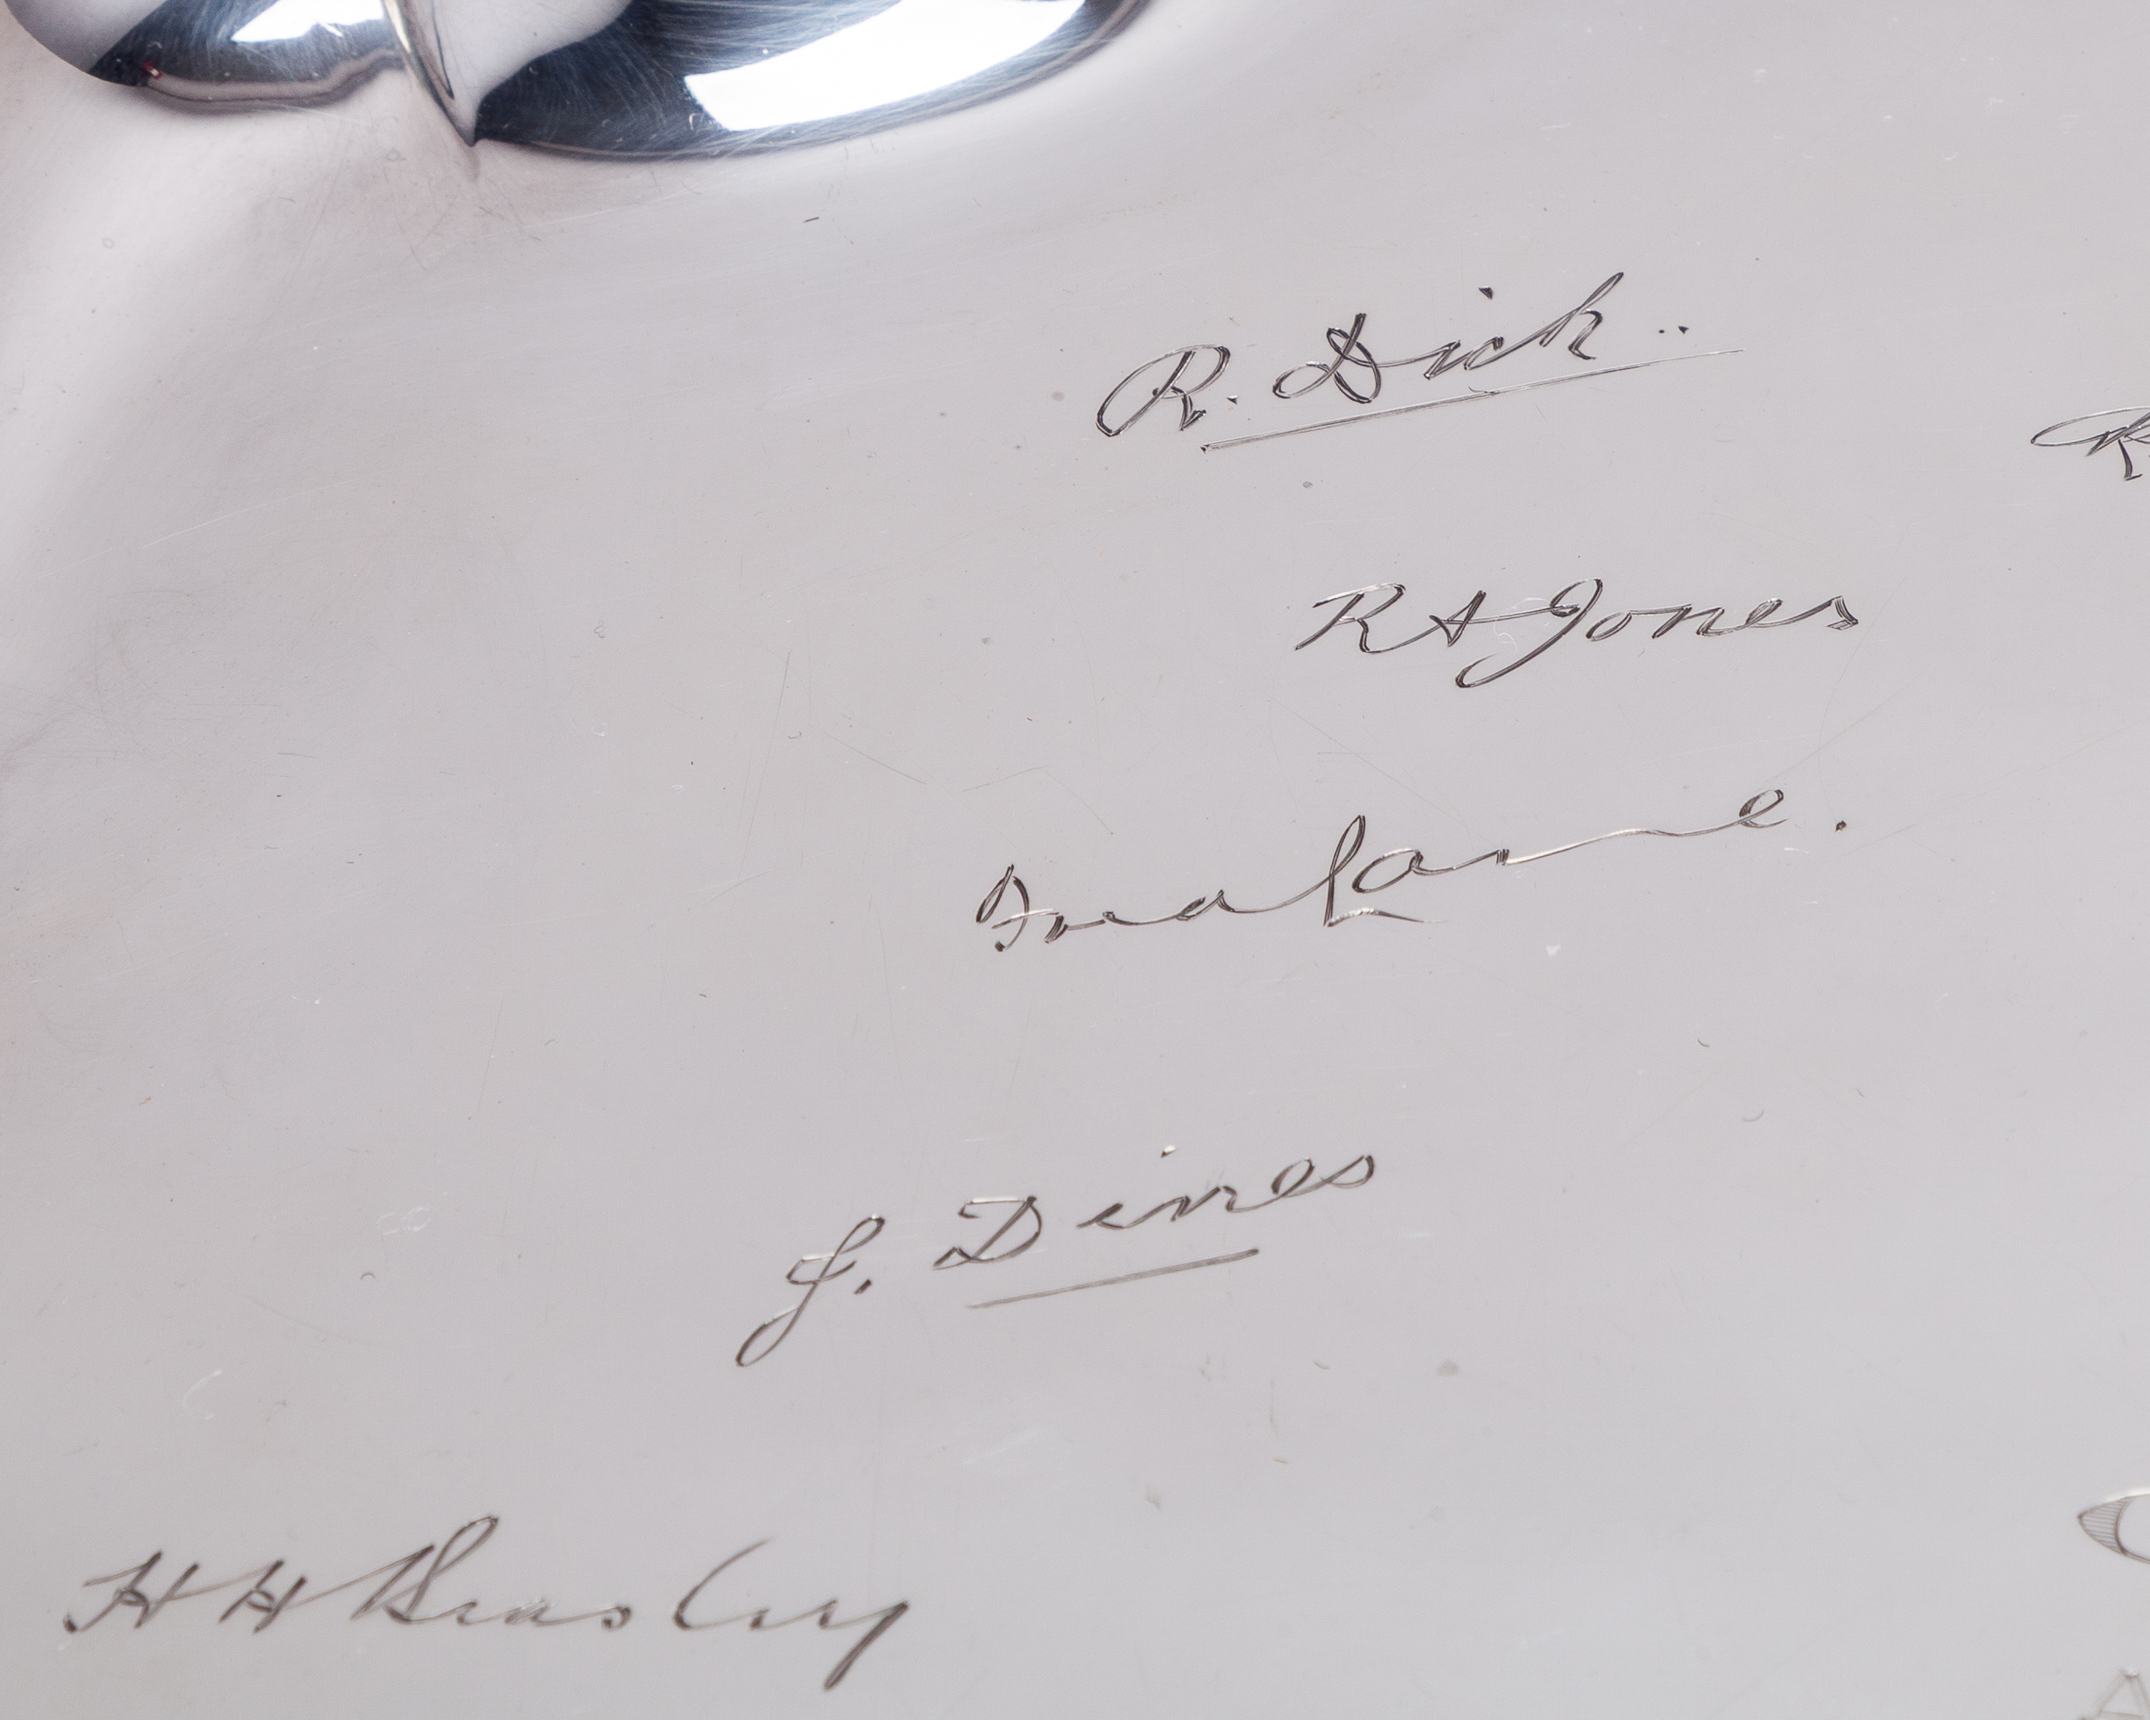 R. Dick..
R A Jones
Lane.
J. Dines
H H Beasley